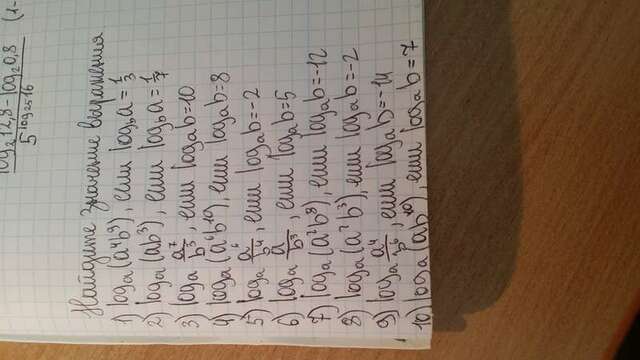 log₂12,8-log₂0,8 (1-
5^log₂₅16
Найдите значение выражения
1) logₐ(a⁴b⁹), если log_b a = 1/3
2) logₐ(ab³), если log_b a = 1/7
3) logₐ a⁷/b³, если logₐb=10
4) logₐ(a⁶b¹⁰), если logₐb=8
5) logₐ a⁶/b⁴, если logₐb=-2
6) logₐ a/b³, если logₐb=5
7) logₐ(a²b⁸), если logₐb=-12
8) logₐ(a²b³), если logₐb=-2
9) logₐ a⁴/b⁶, если logₐb=-14
10) logₐ(ab¹⁰), если logₐb=7